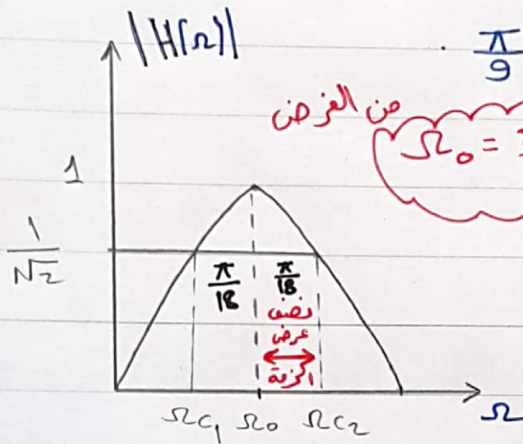 |H(Ω)|
. π/9
من الفرض
Ω₀ =
1
1/√2
π/18 π/18
نصف
عرض
الحزمة
Ωc₁ Ω₀ Ωc₂ Ω